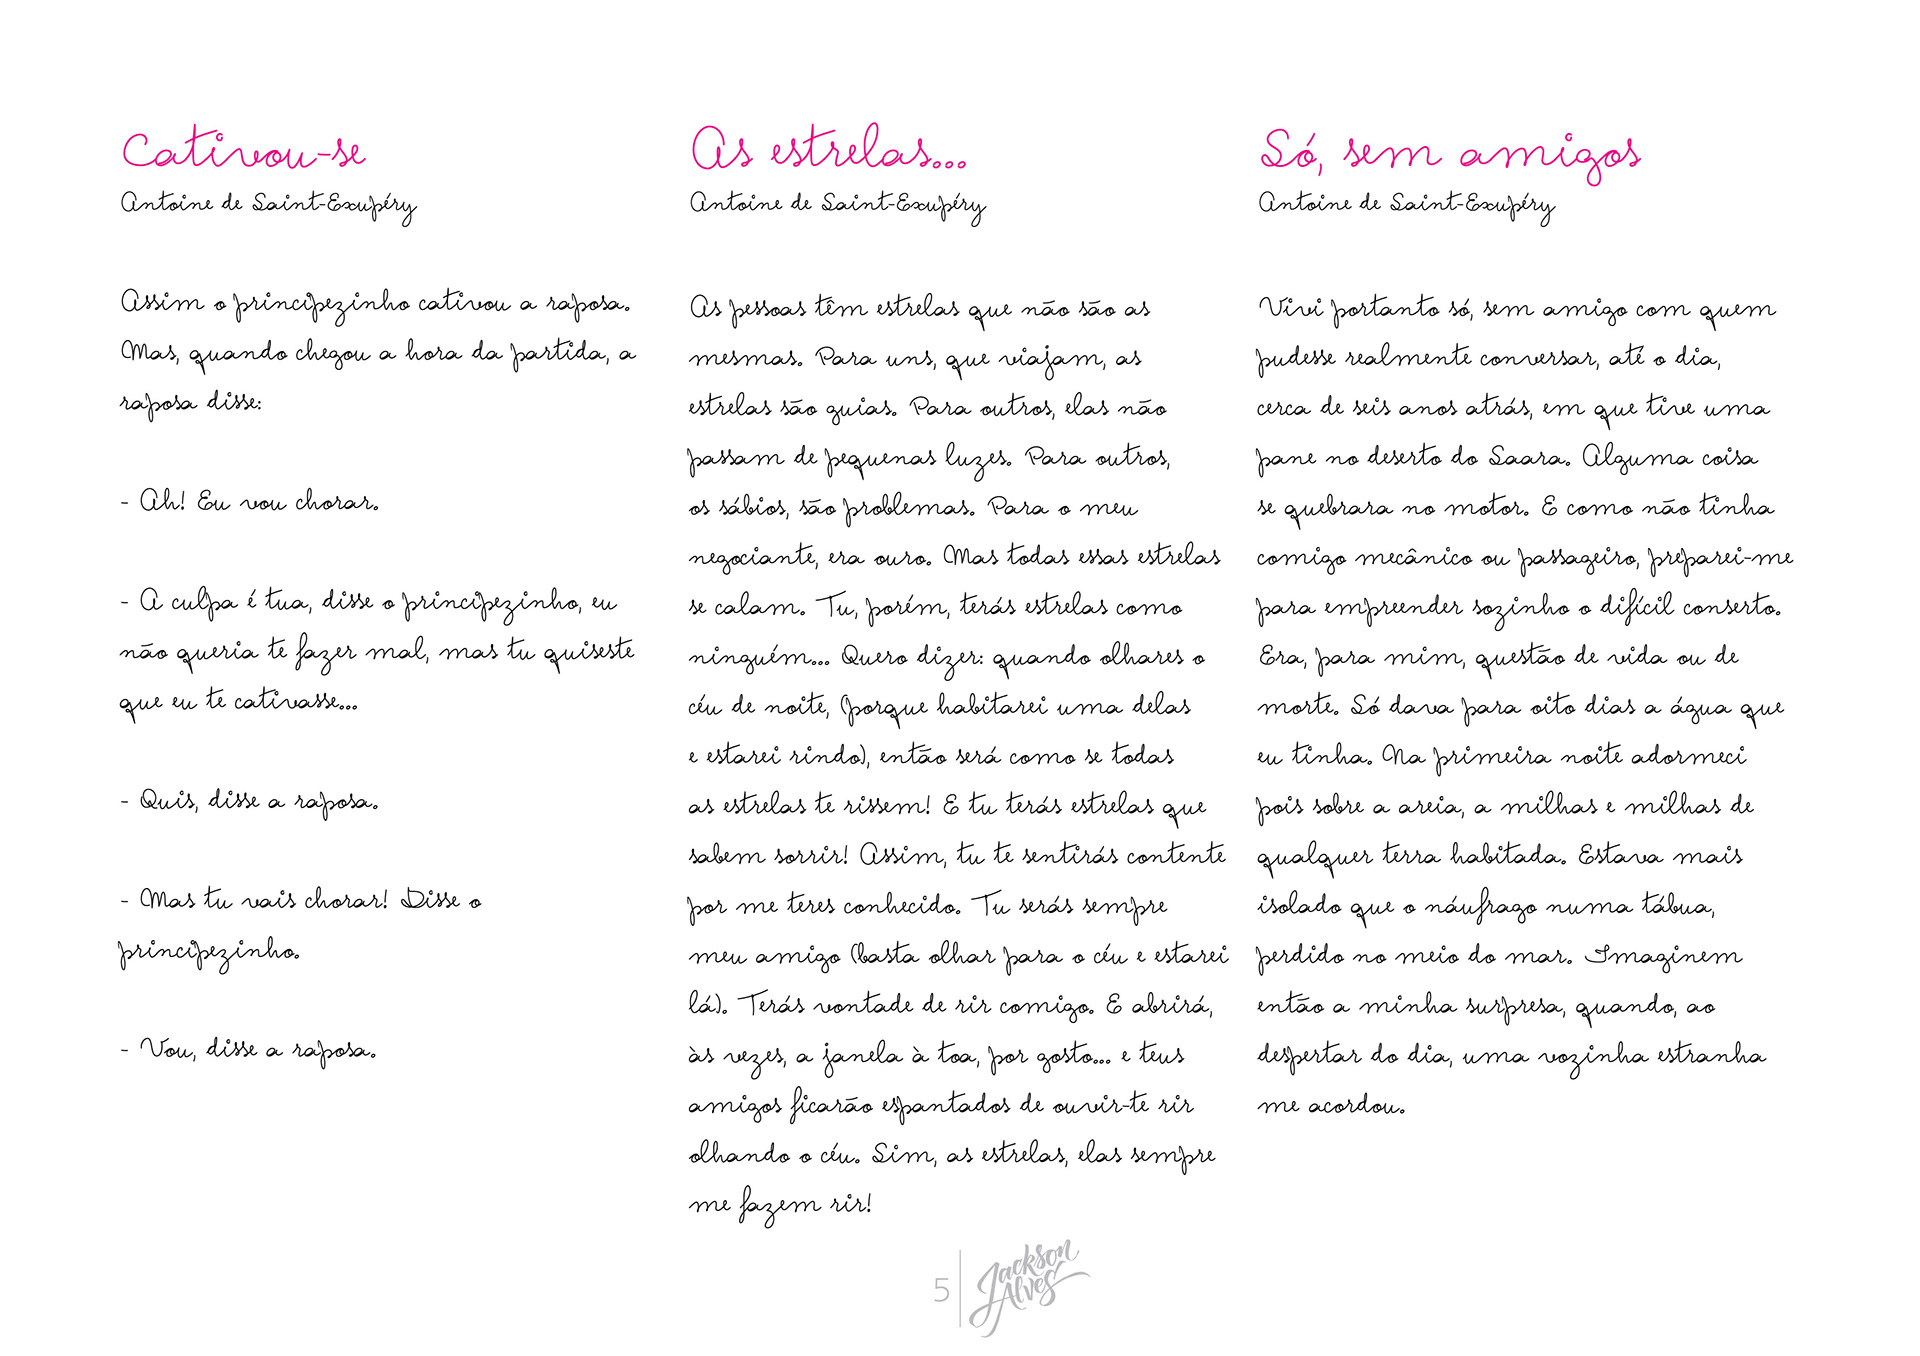 Cativou-se
Antoine de Saint-Exupéry
Assim o principezinho cativou a raposa.
Mas, quando chegou a hora da partida, a
raposa disse:
- Ah! Eu vou chorar.
- A culpa é tua, disse o principezinho, eu
não queria te fazer mal, mas tu quiseste
que eu te cativasse...
- Quis, disse a raposa.
- Mas tu vais chorar! Disse o
principezinho.
- Vou, disse a raposa.
As estrelas...
Antoine de Saint-Exupéry
As pessoas têm estrelas que não são as
mesmas. Para uns, que viajam, as
estrelas são guias. Para outros, elas não
passam de pequenas luzes. Para outros,
os sábios, são problemas. Para o meu
negociante, era ouro. Mas todas essas estrelas
se calam. Tu, porém, terás estrelas como
ninguém... Quero dizer: quando olhares o
céu de noite, (porque habitarei uma delas
e estarei rindo), então será como se todas
as estrelas te rissem! E tu terás estrelas que
sabem sorrir! Assim, tu te sentirás contente
por me teres conhecido. Tu serás sempre
meu amigo (basta olhar para o céu e estarei
lá). Terás vontade de rir comigo. E abrirá,
às vezes, a janela à toa, por gosto... e teus
amigos ficarão espantados de ouvir-te rir
olhando o céu. Sim, as estrelas, elas sempre
me fazem rir!
Só, sem amigos
Antoine de Saint-Exupéry
Vivi portanto só, sem amigo com quem
pudesse realmente conversar, até o dia,
cerca de seis anos atrás, em que tive uma
pane no deserto do Saara. Alguma coisa
se quebrara no motor. E como não tinha
comigo mecânico ou passageiro, preparei-me
para empreender sozinho o difícil conserto.
Era, para mim, questão de vida ou de
morte. Só dava para oito dias a água que
eu tinha. Na primeira noite adormeci
pois sobre a areia, a milhas e milhas de
qualquer terra habitada. Estava mais
isolado que o náufrago numa tábua,
perdido no meio do mar. Imaginem
então a minha surpresa, quando, ao
despertar do dia, uma vozinha estranha
me acordou.
5
Jackson
Alves